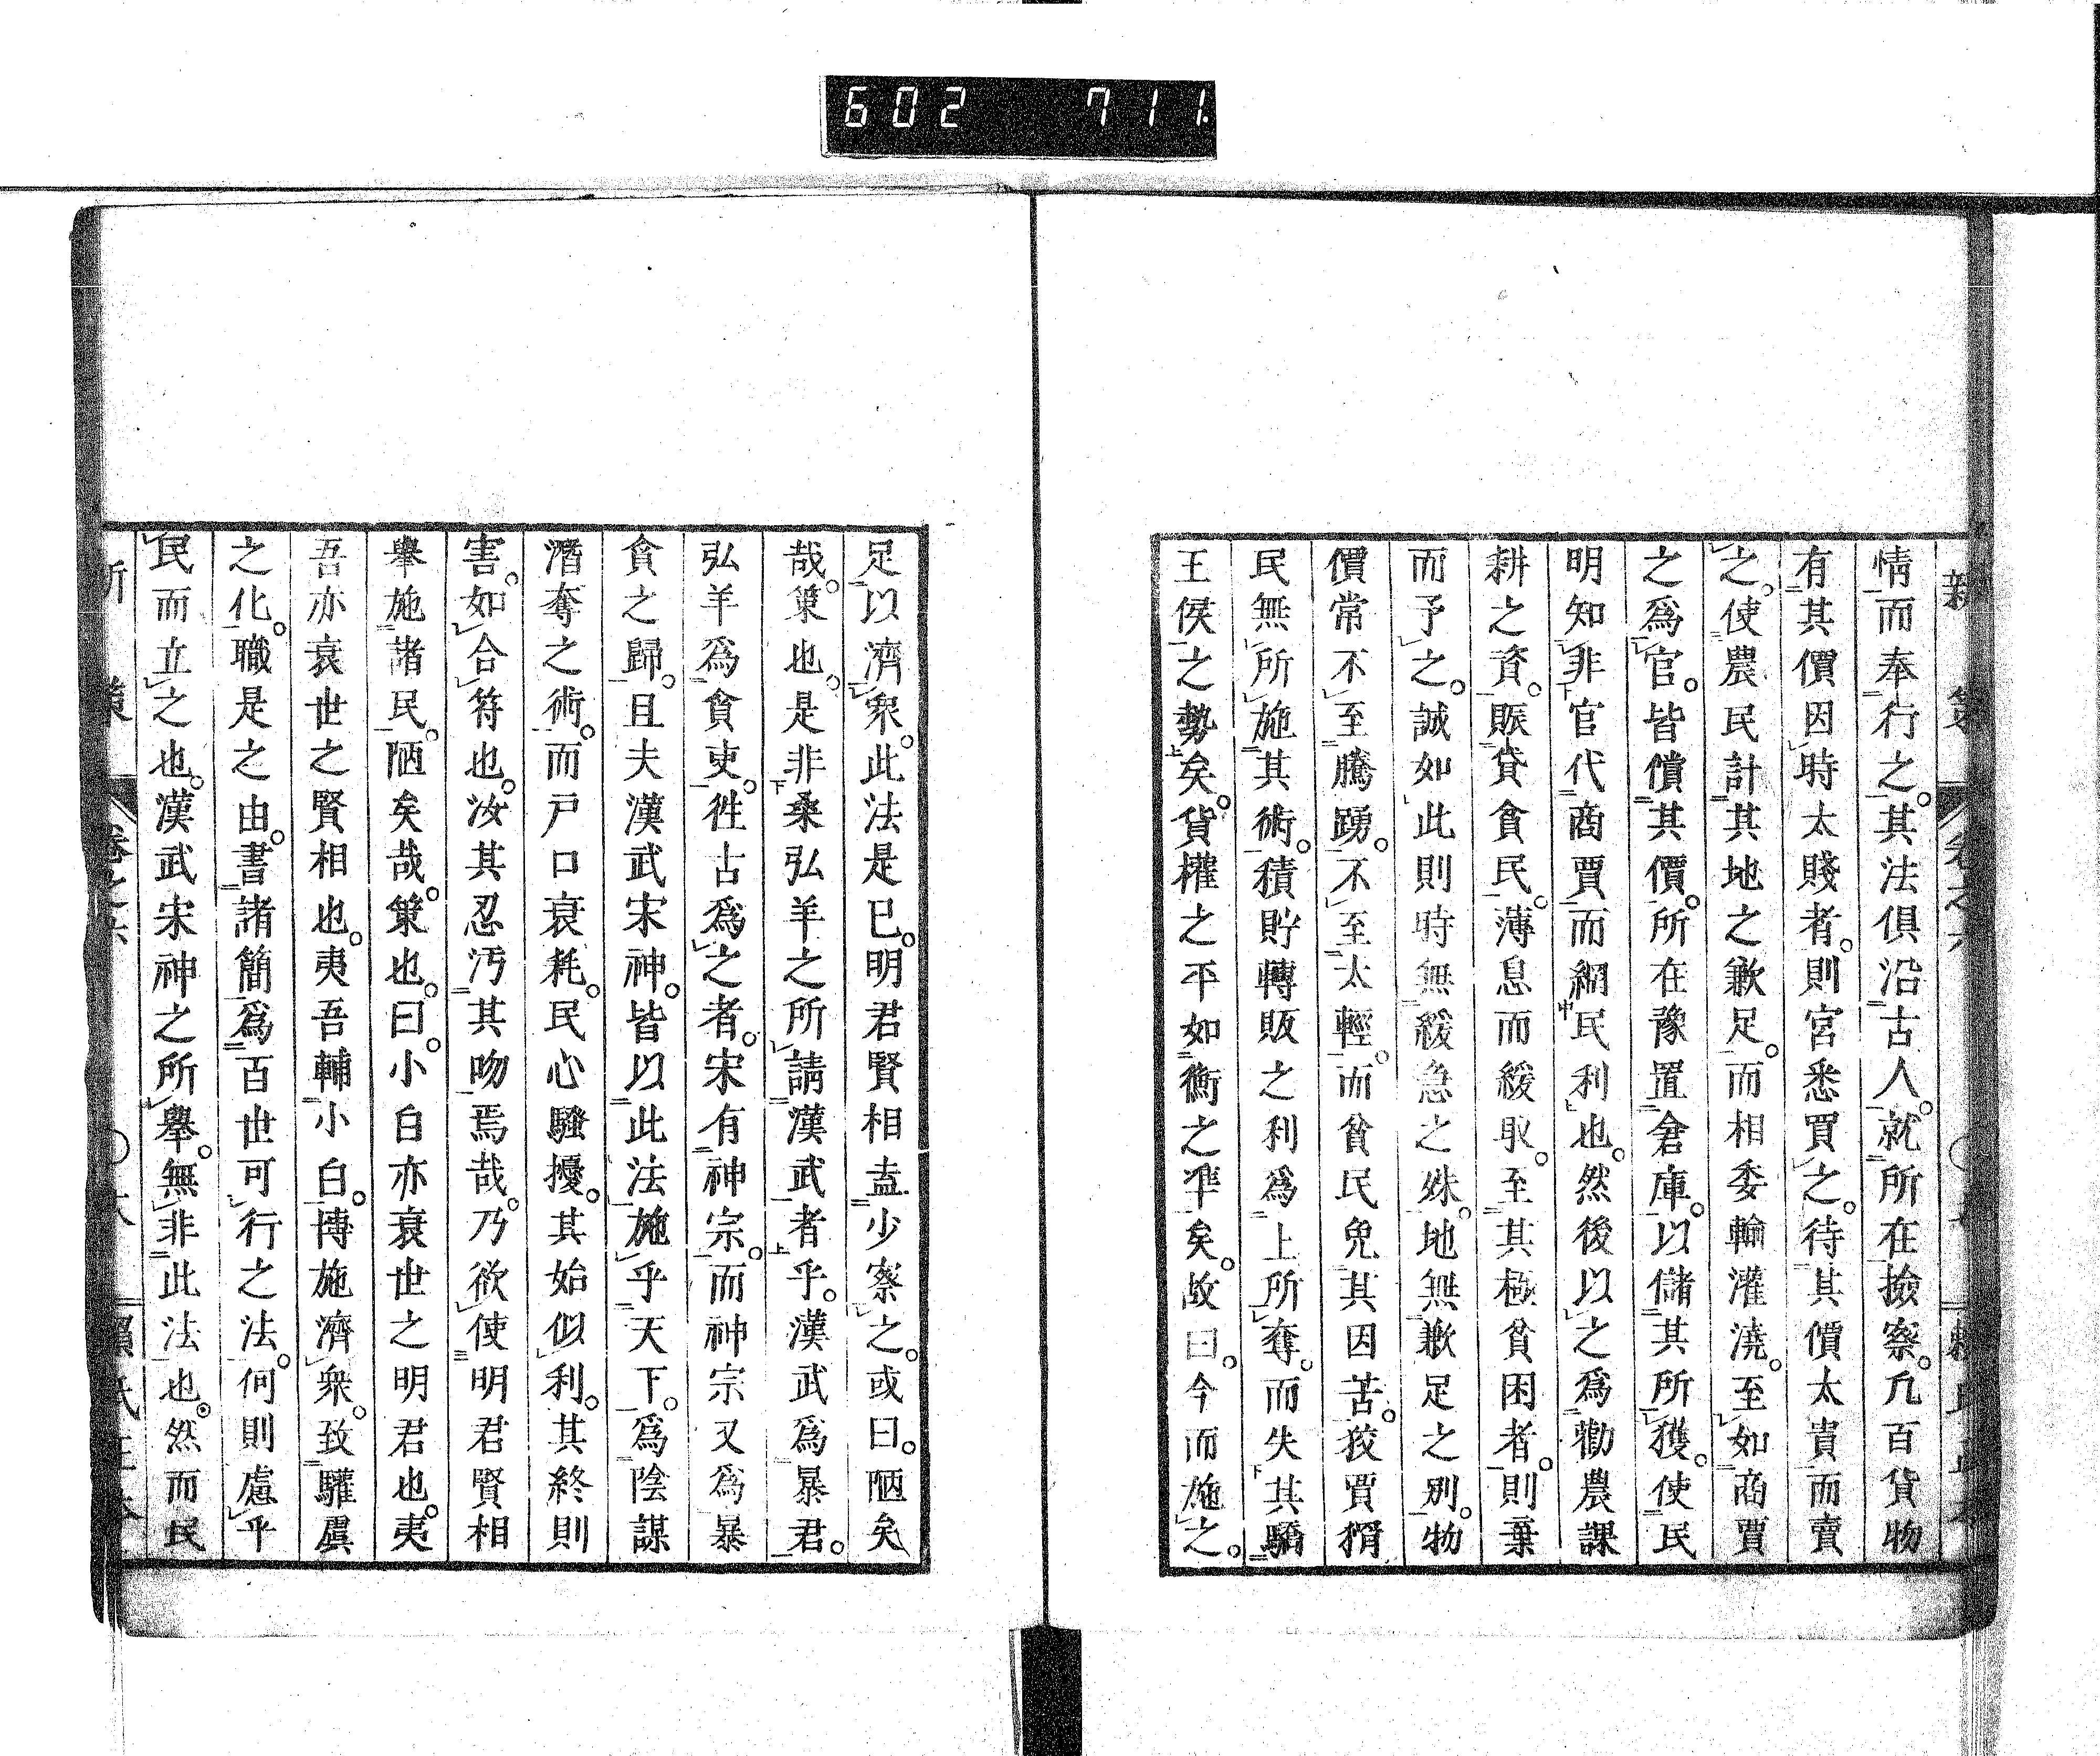 602 711.
情而奉行之。其法俱沿古人。就所在撿察。凡百貨物
有其價因時太賤者。則宮悉買之。待其價太貴而賣
之。使農民計其地之歉足。而相委輸灌澆。至如商賈
之爲官。皆償其價。所在豫置倉庫。以儲其所獲。使民
明知非官代商賈而網民利也。然後以之爲勸農課
耕之資。賑貸貧民。薄息而緩取。至其極貧困者。則棄
而予之。誠如此則時無緩急之殊。地無歉足之別。物
價常不至騰踴。不至太輕。而貧民免其因苦。狡賈猾
民無所施其術。積貯轉販之利爲上所奪。而失其驕
王侯之勢矣。貨權之平如衡之凖矣。故曰。今而施之。
足以濟衆。此法是已。明君賢相盍少察之。或曰。陋矣
哉。策也。是非桑弘羊之所請漢武者乎。漢武爲暴君。
弘羊爲貪吏。徃古爲之者。宋有神宗。而神宗又爲暴
貪之歸。且夫漢武宋神。皆以此法施乎天下。爲陰謀
潛奪之術。而戸口衰耗。民心騷擾。其始似利。其終則
害。如合符也。汝其忍汚其吻焉哉。乃欲使明君賢相
擧施諸民。陋矣哉。策也。曰。小白亦衰世之明君也。夷
吾亦衰世之賢相也。夷吾輔小白。博施濟衆。致驩虞
之化。職是之由。書諸簡爲百世可行之法。何則慮乎
民而立之也。漢武宋神之所擧。無非此法也。然而民